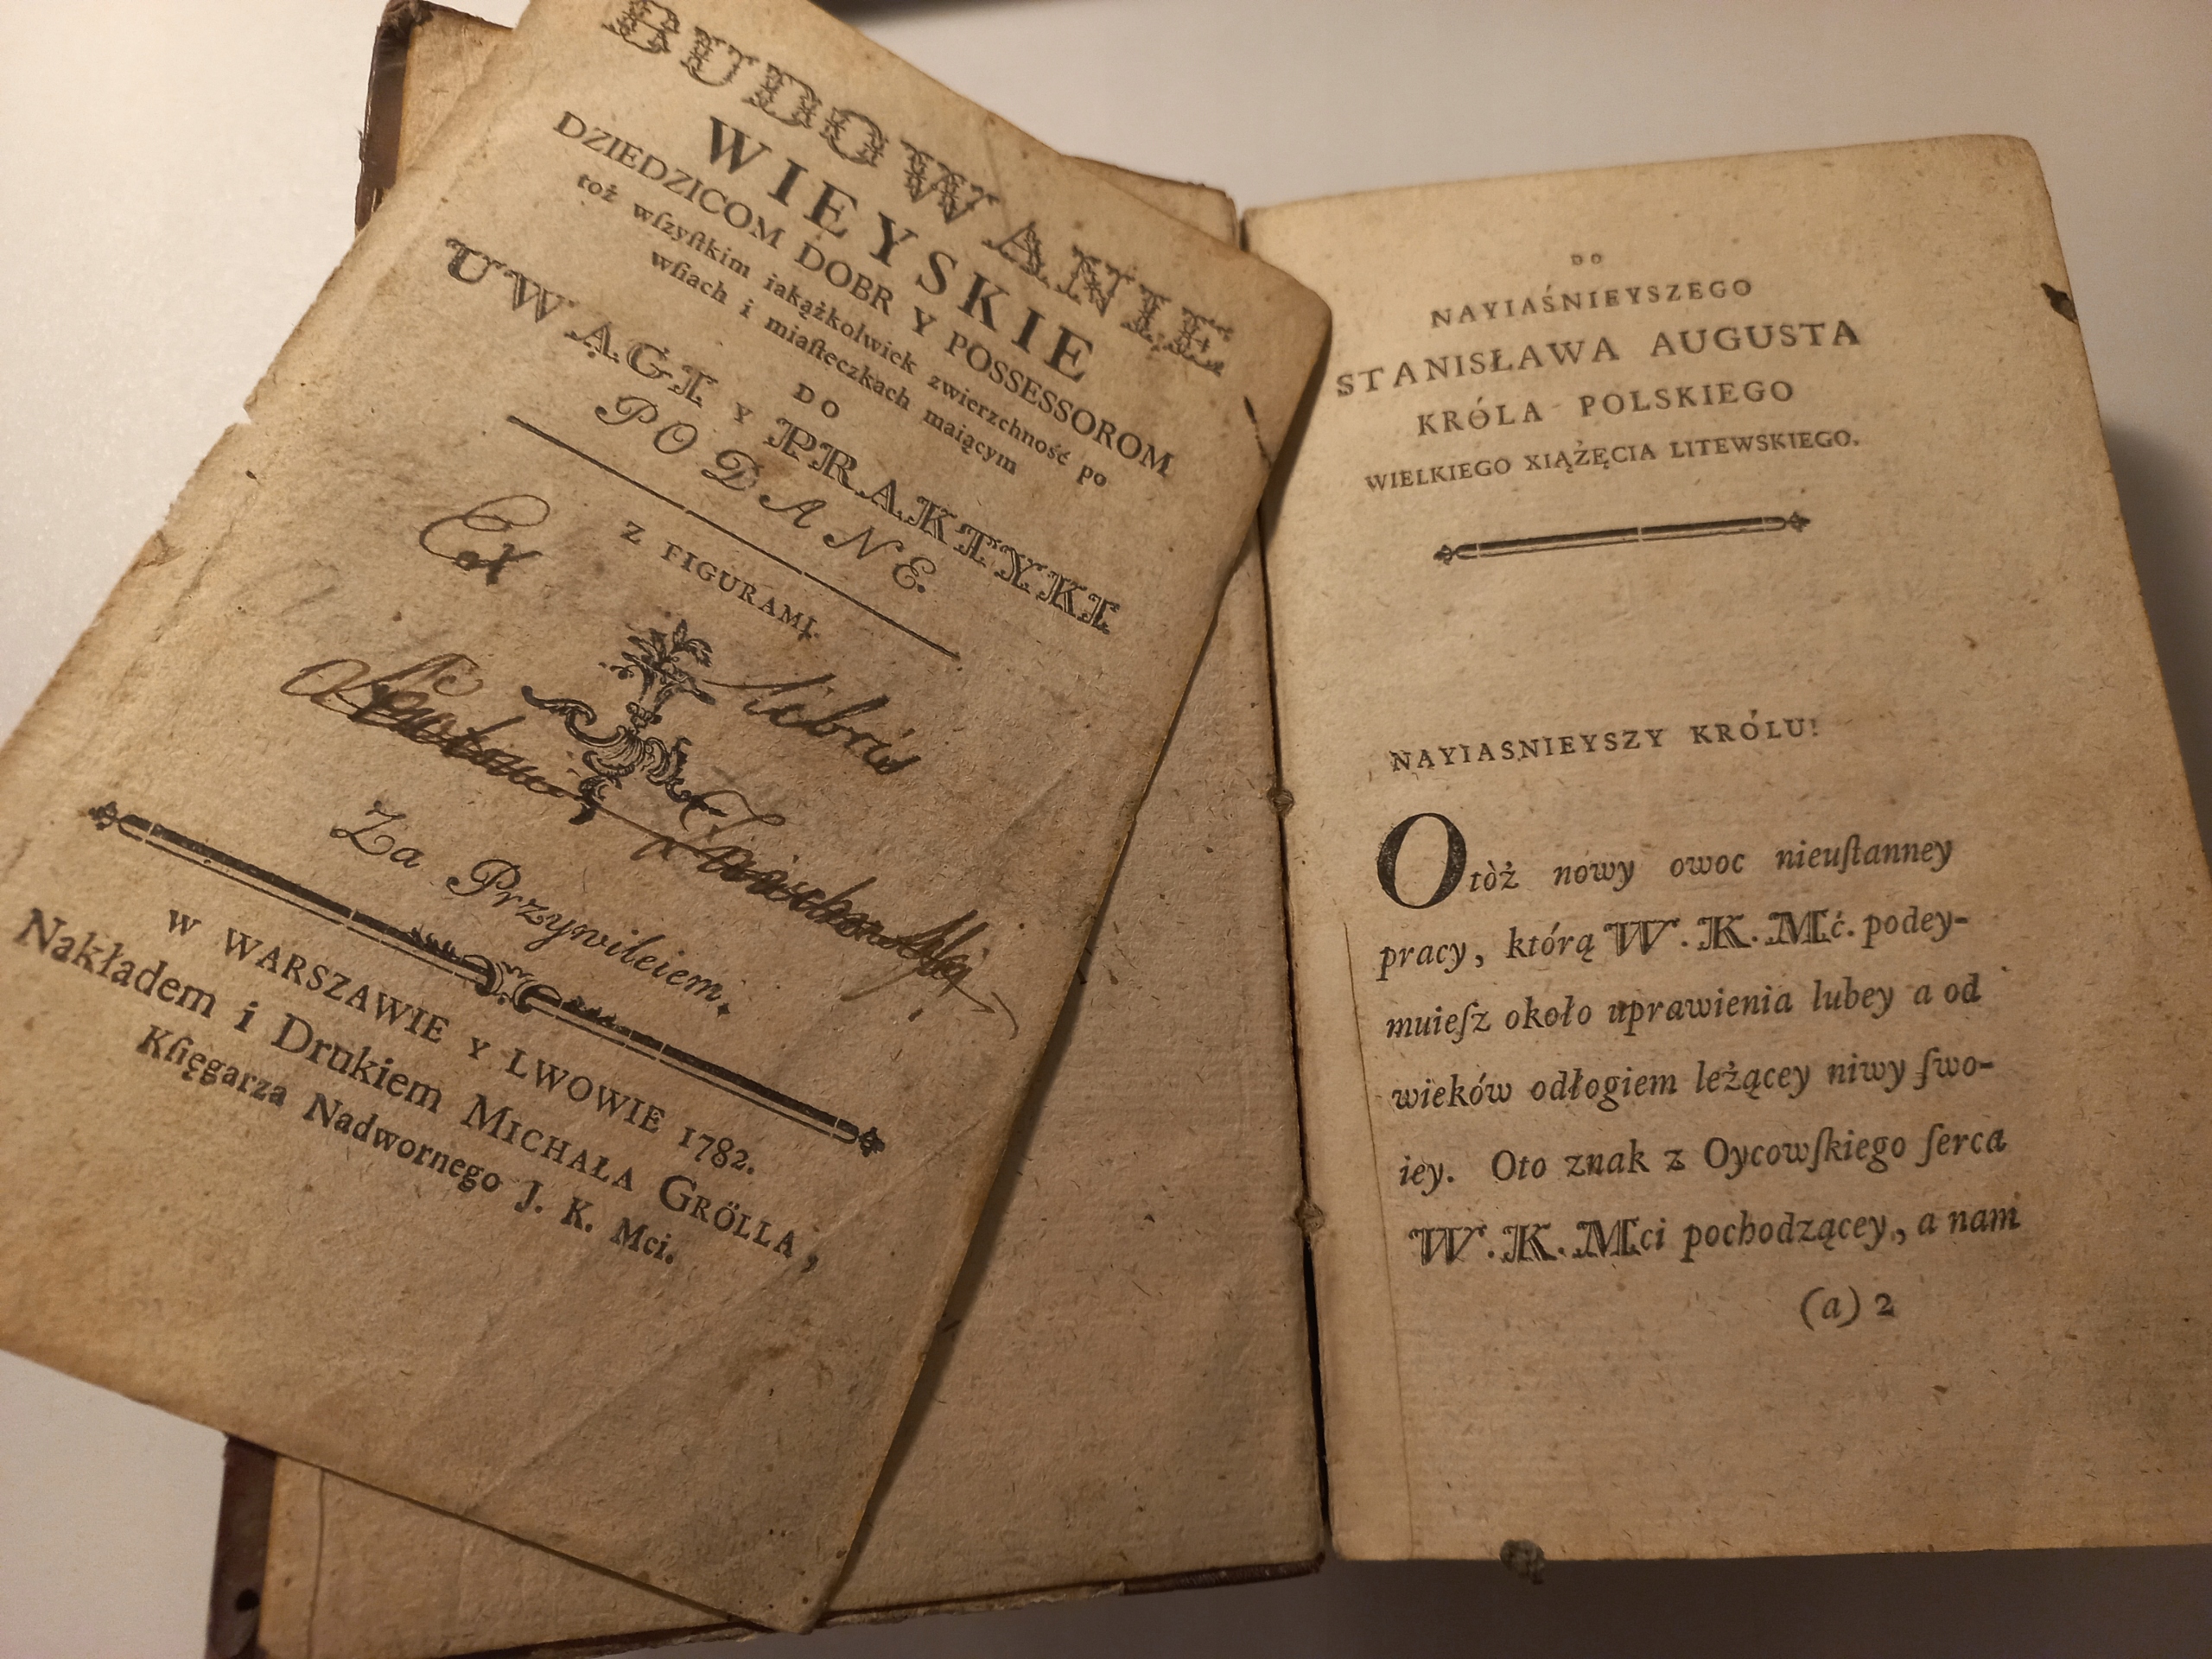 BUDOWANIE
WIEYSKIE
DZIEDZICOM DOBR Y POSSESSOROM
toż wſzyſtkim iakążkolwiek zwierzchność po
wſiach i miaſteczkach maiącym
DO
UWAGI Y PRAKTYKI
PODANE.
Z FIGURAMI.
Ex Libris
Za Przywileiem.
W WARSZAWIE Y LWOWIE 1782.
Nakładem i Drukiem MICHAŁA GRÖLLA,
Kſięgarza Nadwornego J. K. Mci.
DO
NAYIAŚNIEYSZEGO
STANISŁAWA AUGUSTA
KRÓLA POLSKIEGO
WIELKIEGO XIĄŻĘCIA LITEWSKIEGO.
NAYIASNIEYSZY KRÓLU!
Otòż nowy owoc nieuſtanney
pracy, którą W. K. Mć. podey-
muieſz około uprawienia lubey a od
wieków odłogiem leżącey niwy ſwo-
iey. Oto znak z Oycowſkiego ſerca
W. K. Mci pochodzącey, a nam
(a) 2